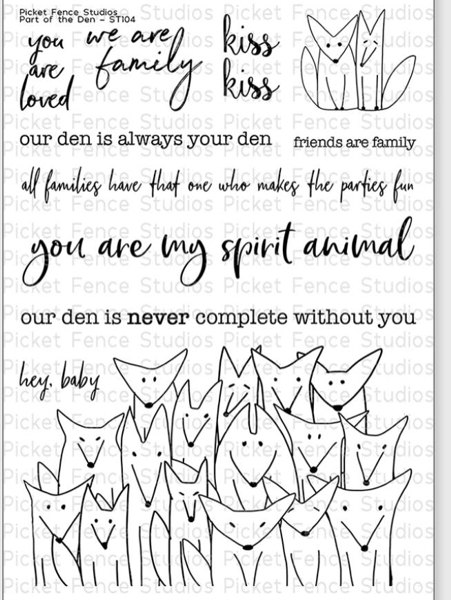 Picket Fence Studios
Part of the Den - ST104
you
are
loved
we are
family
kiss
kiss
our den is always your den
friends are family
all families have that one who makes the parties fun
you are my spirit animal
our den is never complete without you
hey, baby